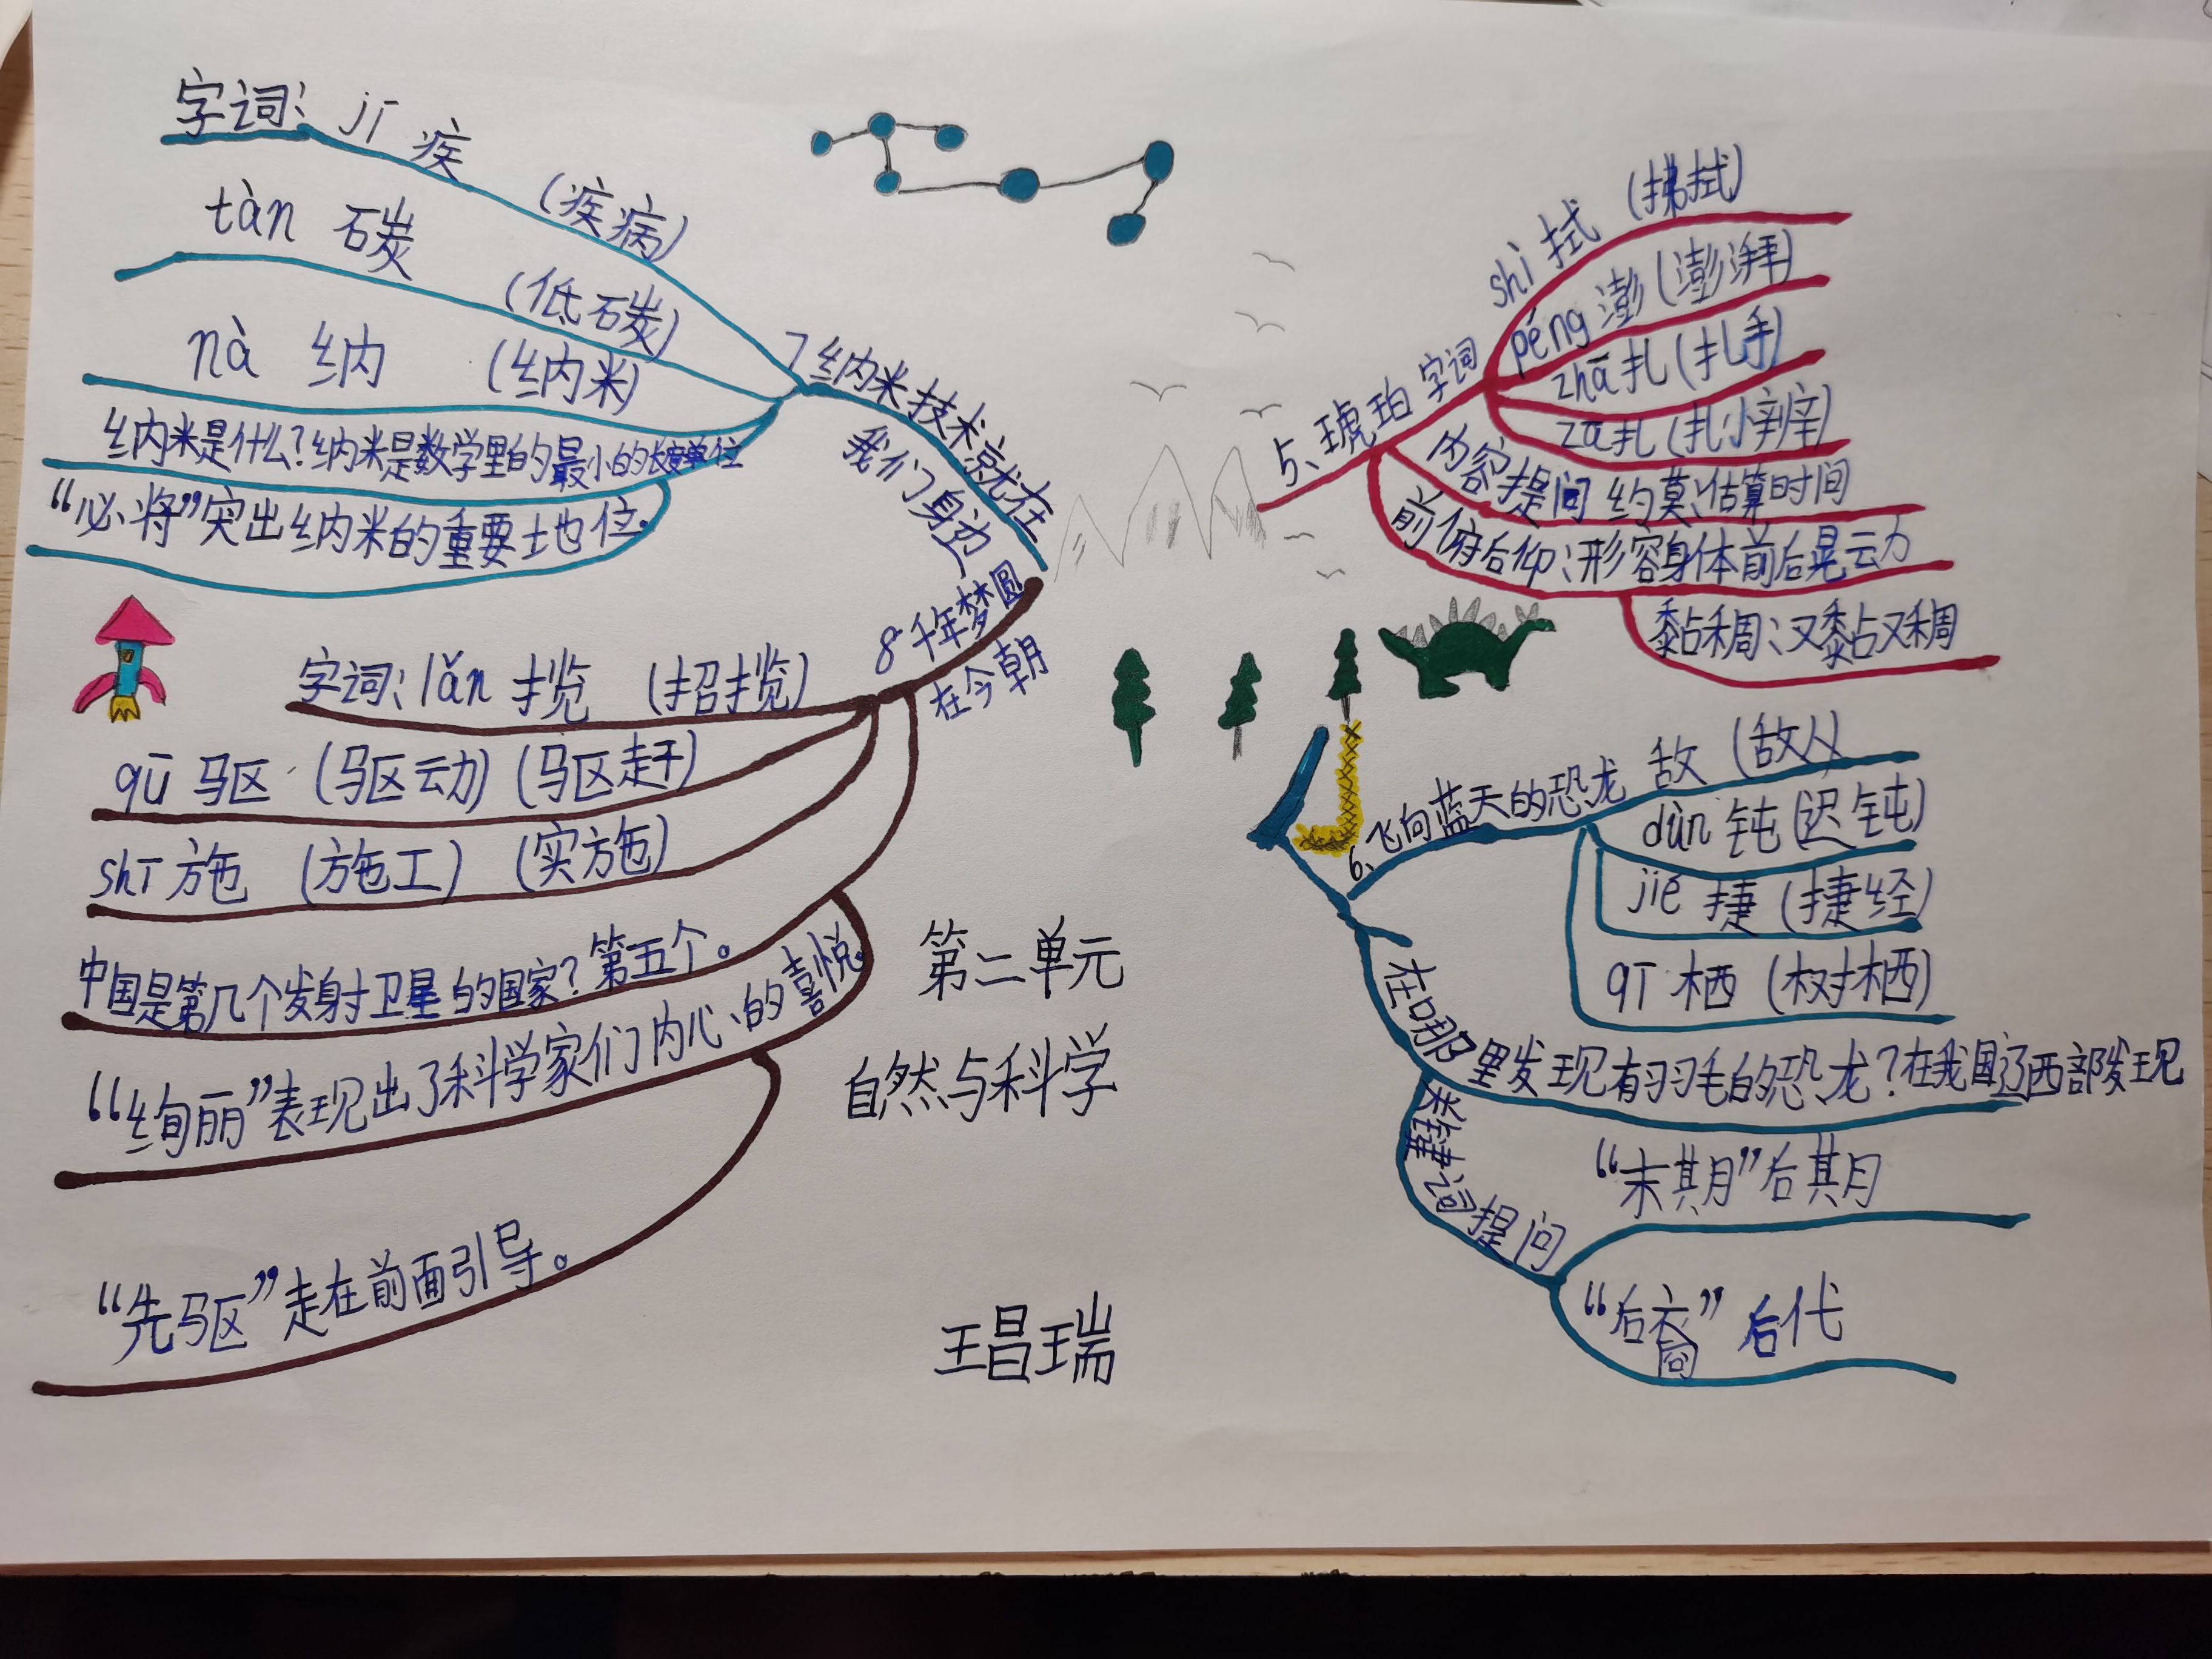 字词: jí 疾 (疾病)
tàn 碳 (低碳)
nà 纳 (纳米)
纳米是什么?纳米是数学里的最小的长度单位
“必将”突出纳米的重要地位.
7 纳米技术就在
我们身边
8 千年梦圆
在今朝
字词: lǎn 揽 (招揽)
qū 驱 (驱动) (驱赶)
shī 施 (施工) (实施)
中国是第几个发射卫星的国家?第五个。
“绚丽”表现出了科学家们内心的喜悦.
“先驱”走在前面引导。
第二单元
自然与科学
王昌瑞
5、琥珀 字词
shì 拭 (拂拭)
péng 澎 (澎湃)
zhā 扎 (扎手)
za 扎 (扎小辛辛)
内容提问 约莫:估算时间
前俯后仰:形容身体前后晃动
黏稠:又黏又稠
6、飞向蓝天的恐龙 敌 (敌人)
dùn 钝 (迟钝)
jié 捷 (捷经)
qī 栖 (树栖)
在哪里发现有羽毛的恐龙?在我国辽西部发现
关键词提问
“末期”后期
“后裔”后代